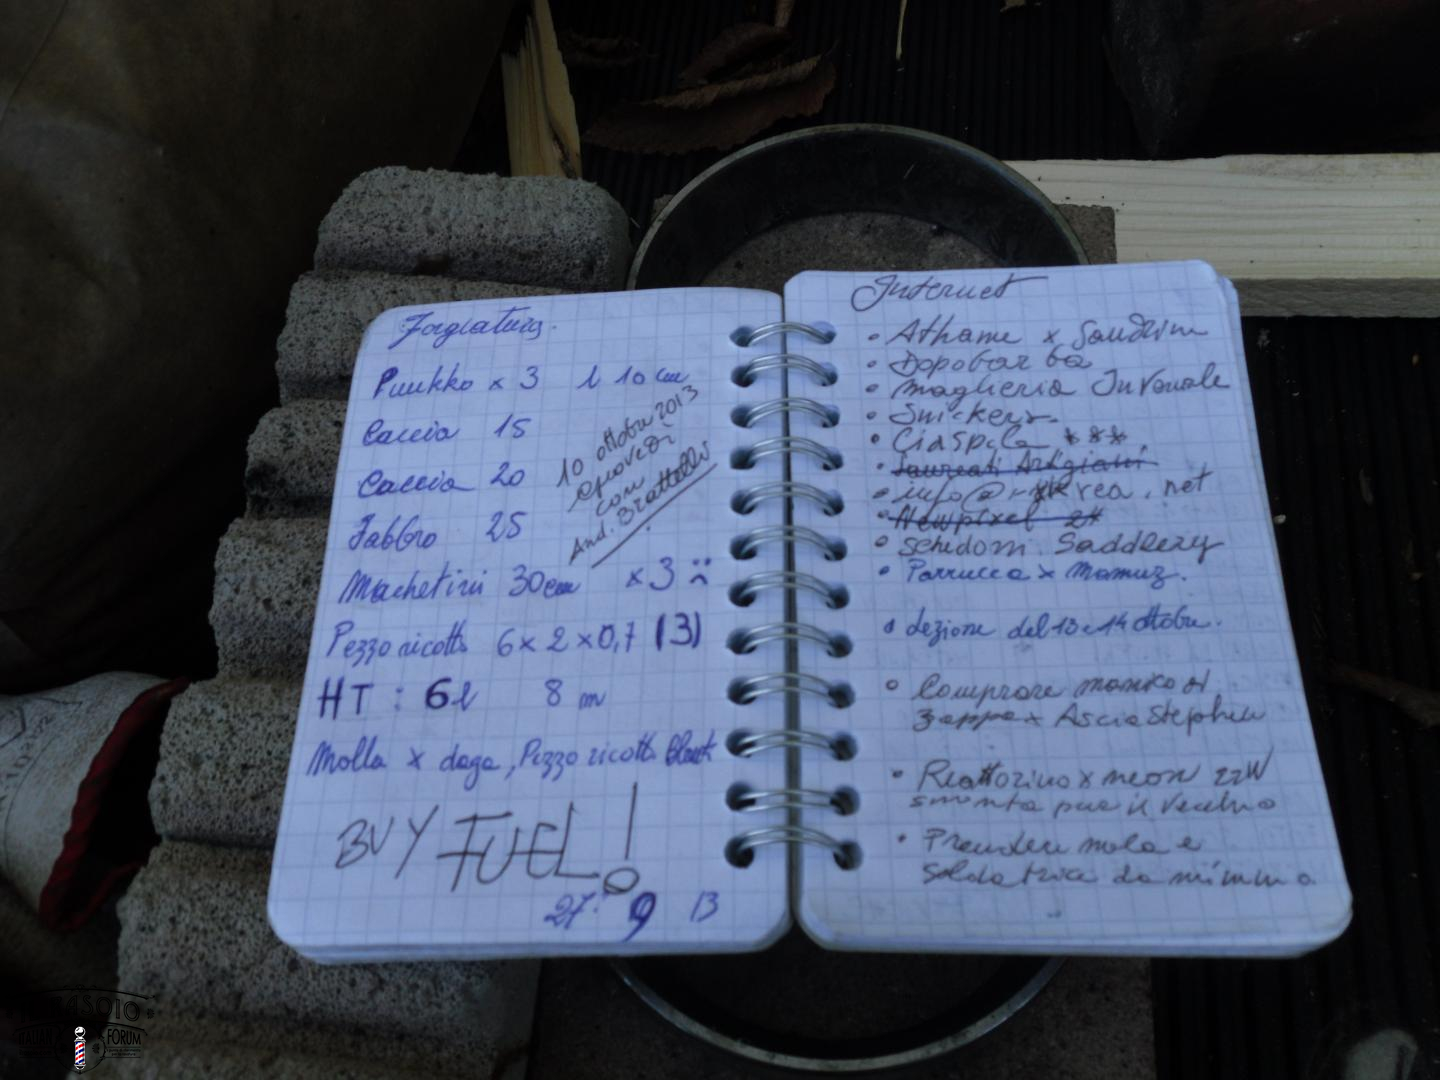 Forgiatura.
Puukko x 3 l 10 cm
Caccia 15
Caccia 20
Fabbro 25
10 ottobre 2013
con
And. Brattelli
Machetini 30cm x 3
Pezzo ricotto 6 x 2 x 0,7 (3)
HT : 6l 8 m
Molla x daga, Pezzo ricotto
BUY FUEL!
27. 9 13
Internet
• Athame x
• Dopobarba
• Maglieria Invernale
• Snickers
• Ciaspole ***
• Laureati Artigiani
• info@ .net
• Newpixel 2*
• Schedoni Saddlery
• Parrucca x Mamuz.
• Lezione del 13 e 14 ottobre.
• Comprare manico di
zappa x Ascia Stephen
• Reattorino x neon 22W
smonta pure il vecchio
• Prendere mola e
Saldatrice da mimmo
FORUM